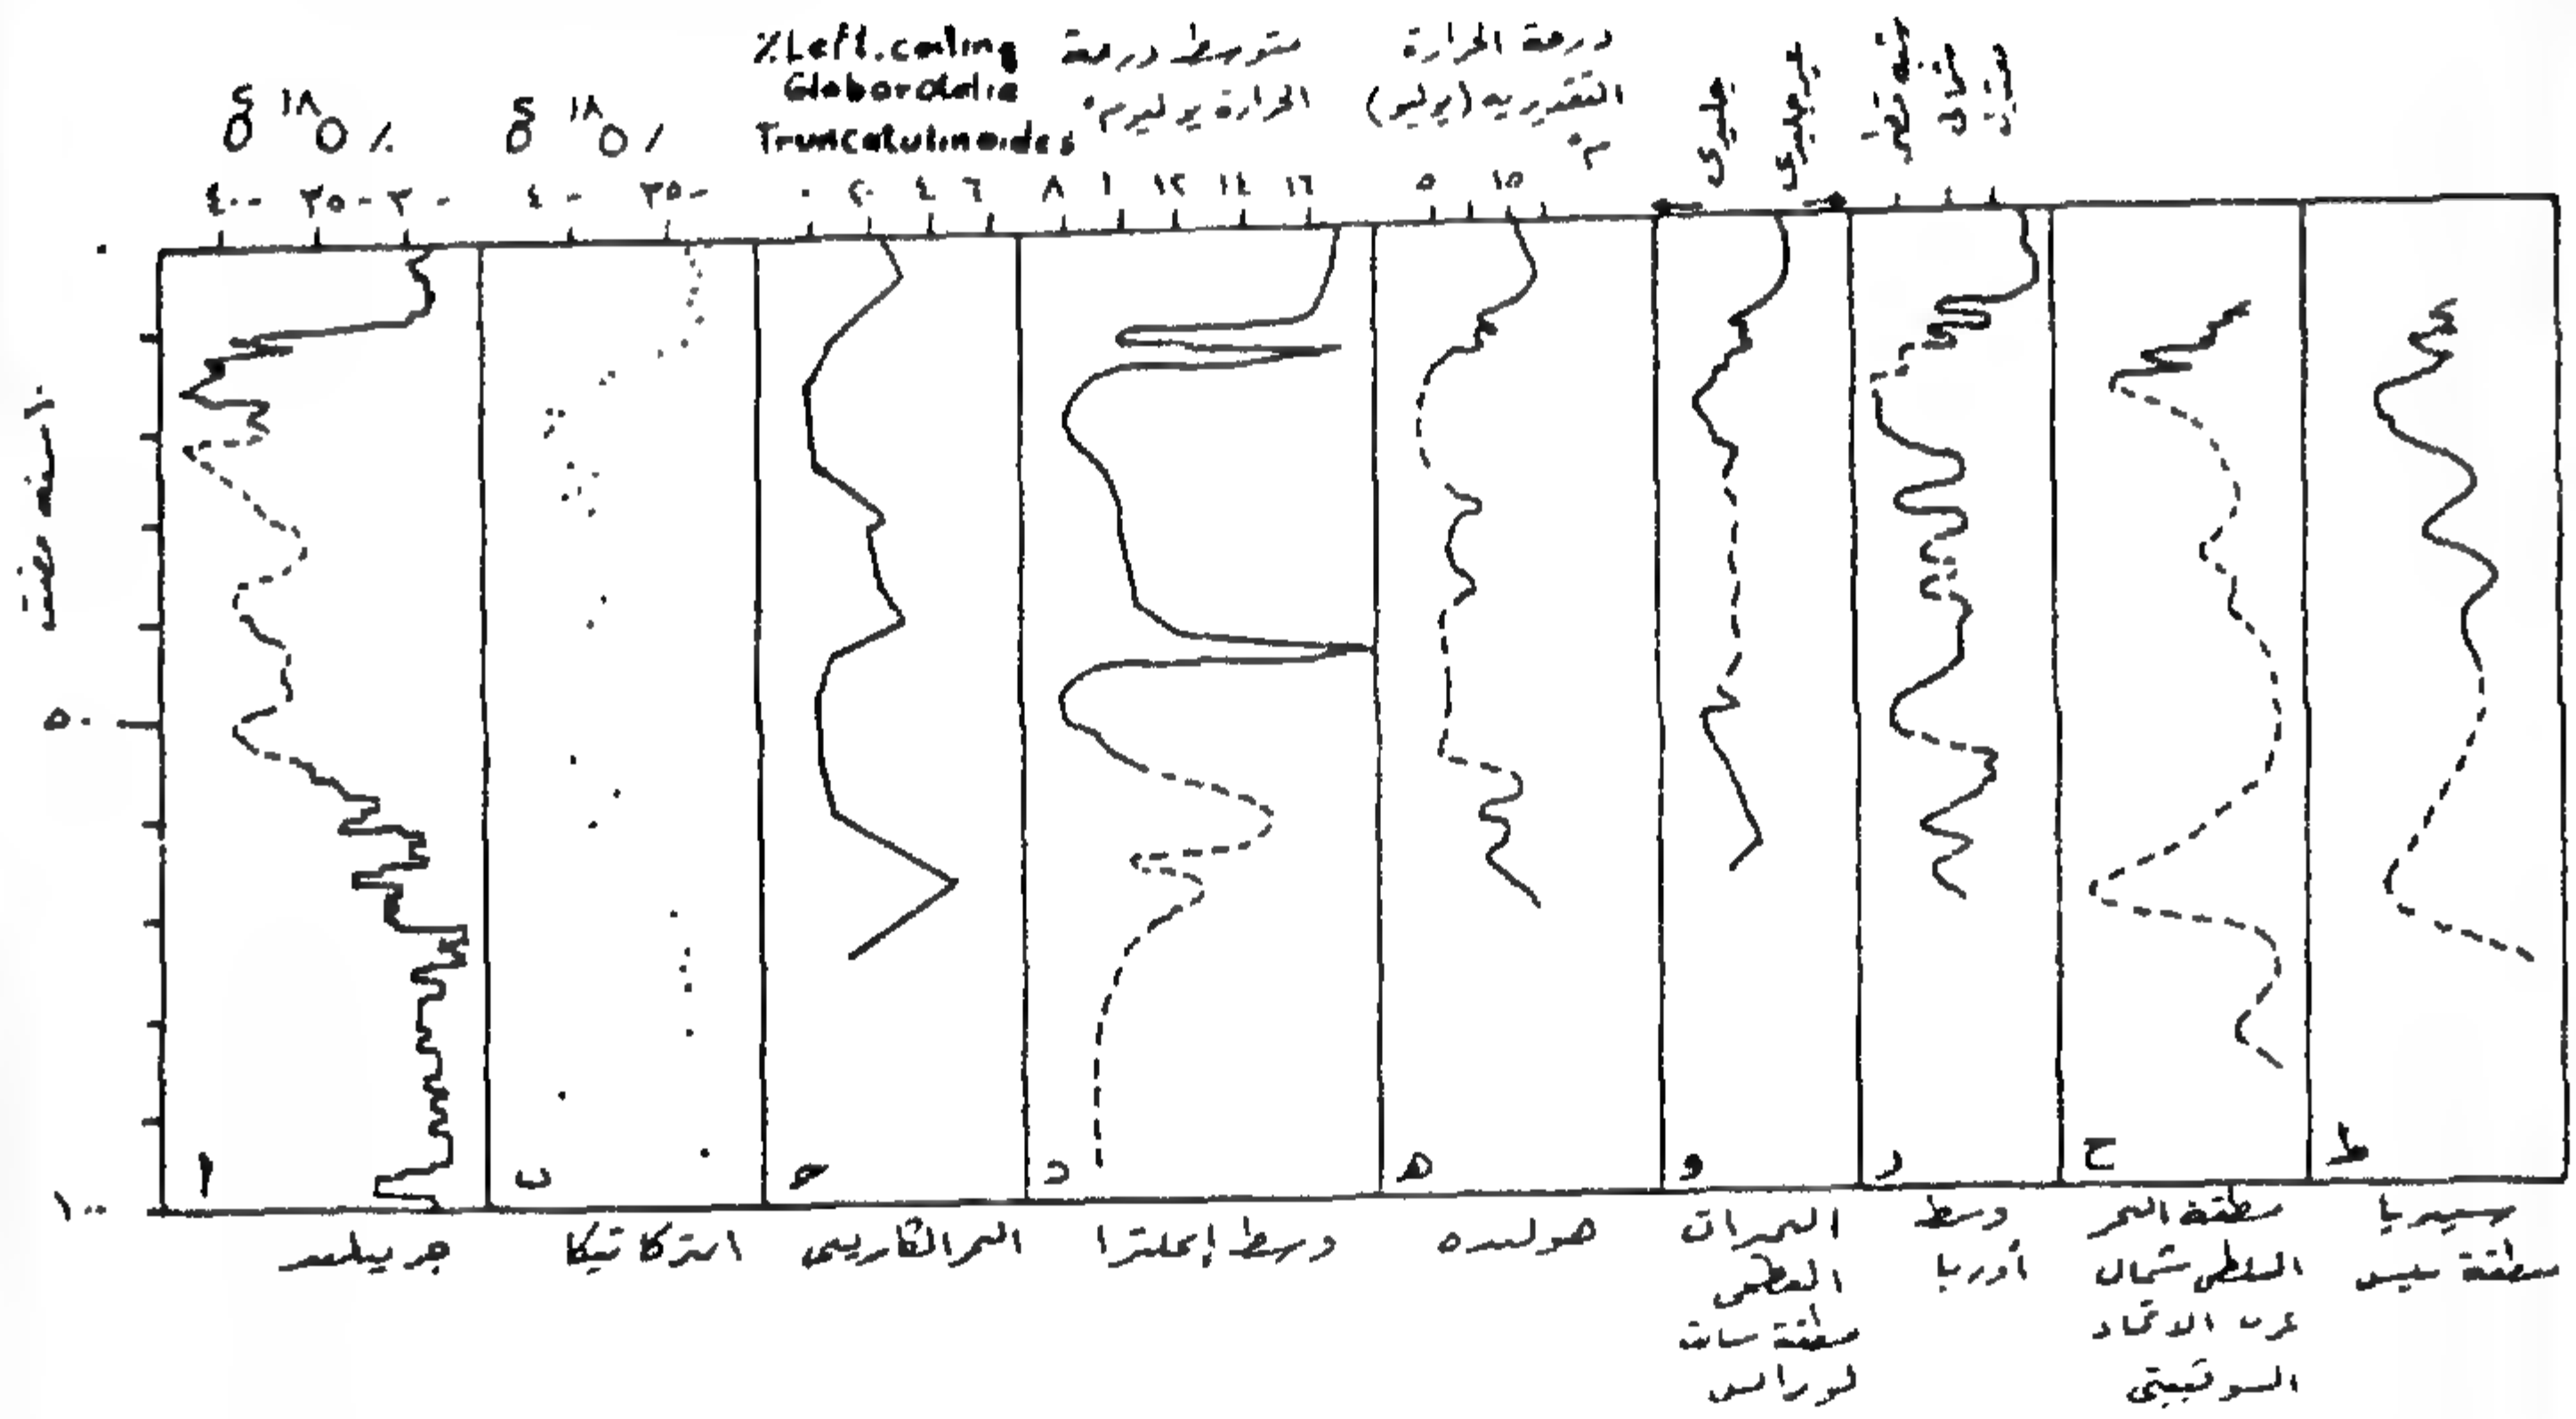 δ ١٨ O ٪
δ ١٨ O ٪
%Left.coiling
Globorotalia
Truncatulinoides
متوسط درجة
الحرارة يوليو م°
درجة الحرارة
التقديرية (يوليو)
م°
جليدى
٤٠- ٣٥- ٣٠-
٤٠- ٣٥-
٠ ٢٠ ٤ ٦
٨ ١ ١٢ ١٤ ١٦
٥ ١٥
٠
٥٠
١٠٠
سنة مضت
ا
ب
جـ
د
هـ
و
ز
ح
ط
جرينلند
انتركاتيكا
البحر الكاريبى
وسط إنجلترا
هولنده
البحيرات
العظمى
منطقة سانت
لورانس
وسط
أوربا
منطقة البحر
البلطى شمال
غرب الاتحاد
السوفييتى
سيبريا